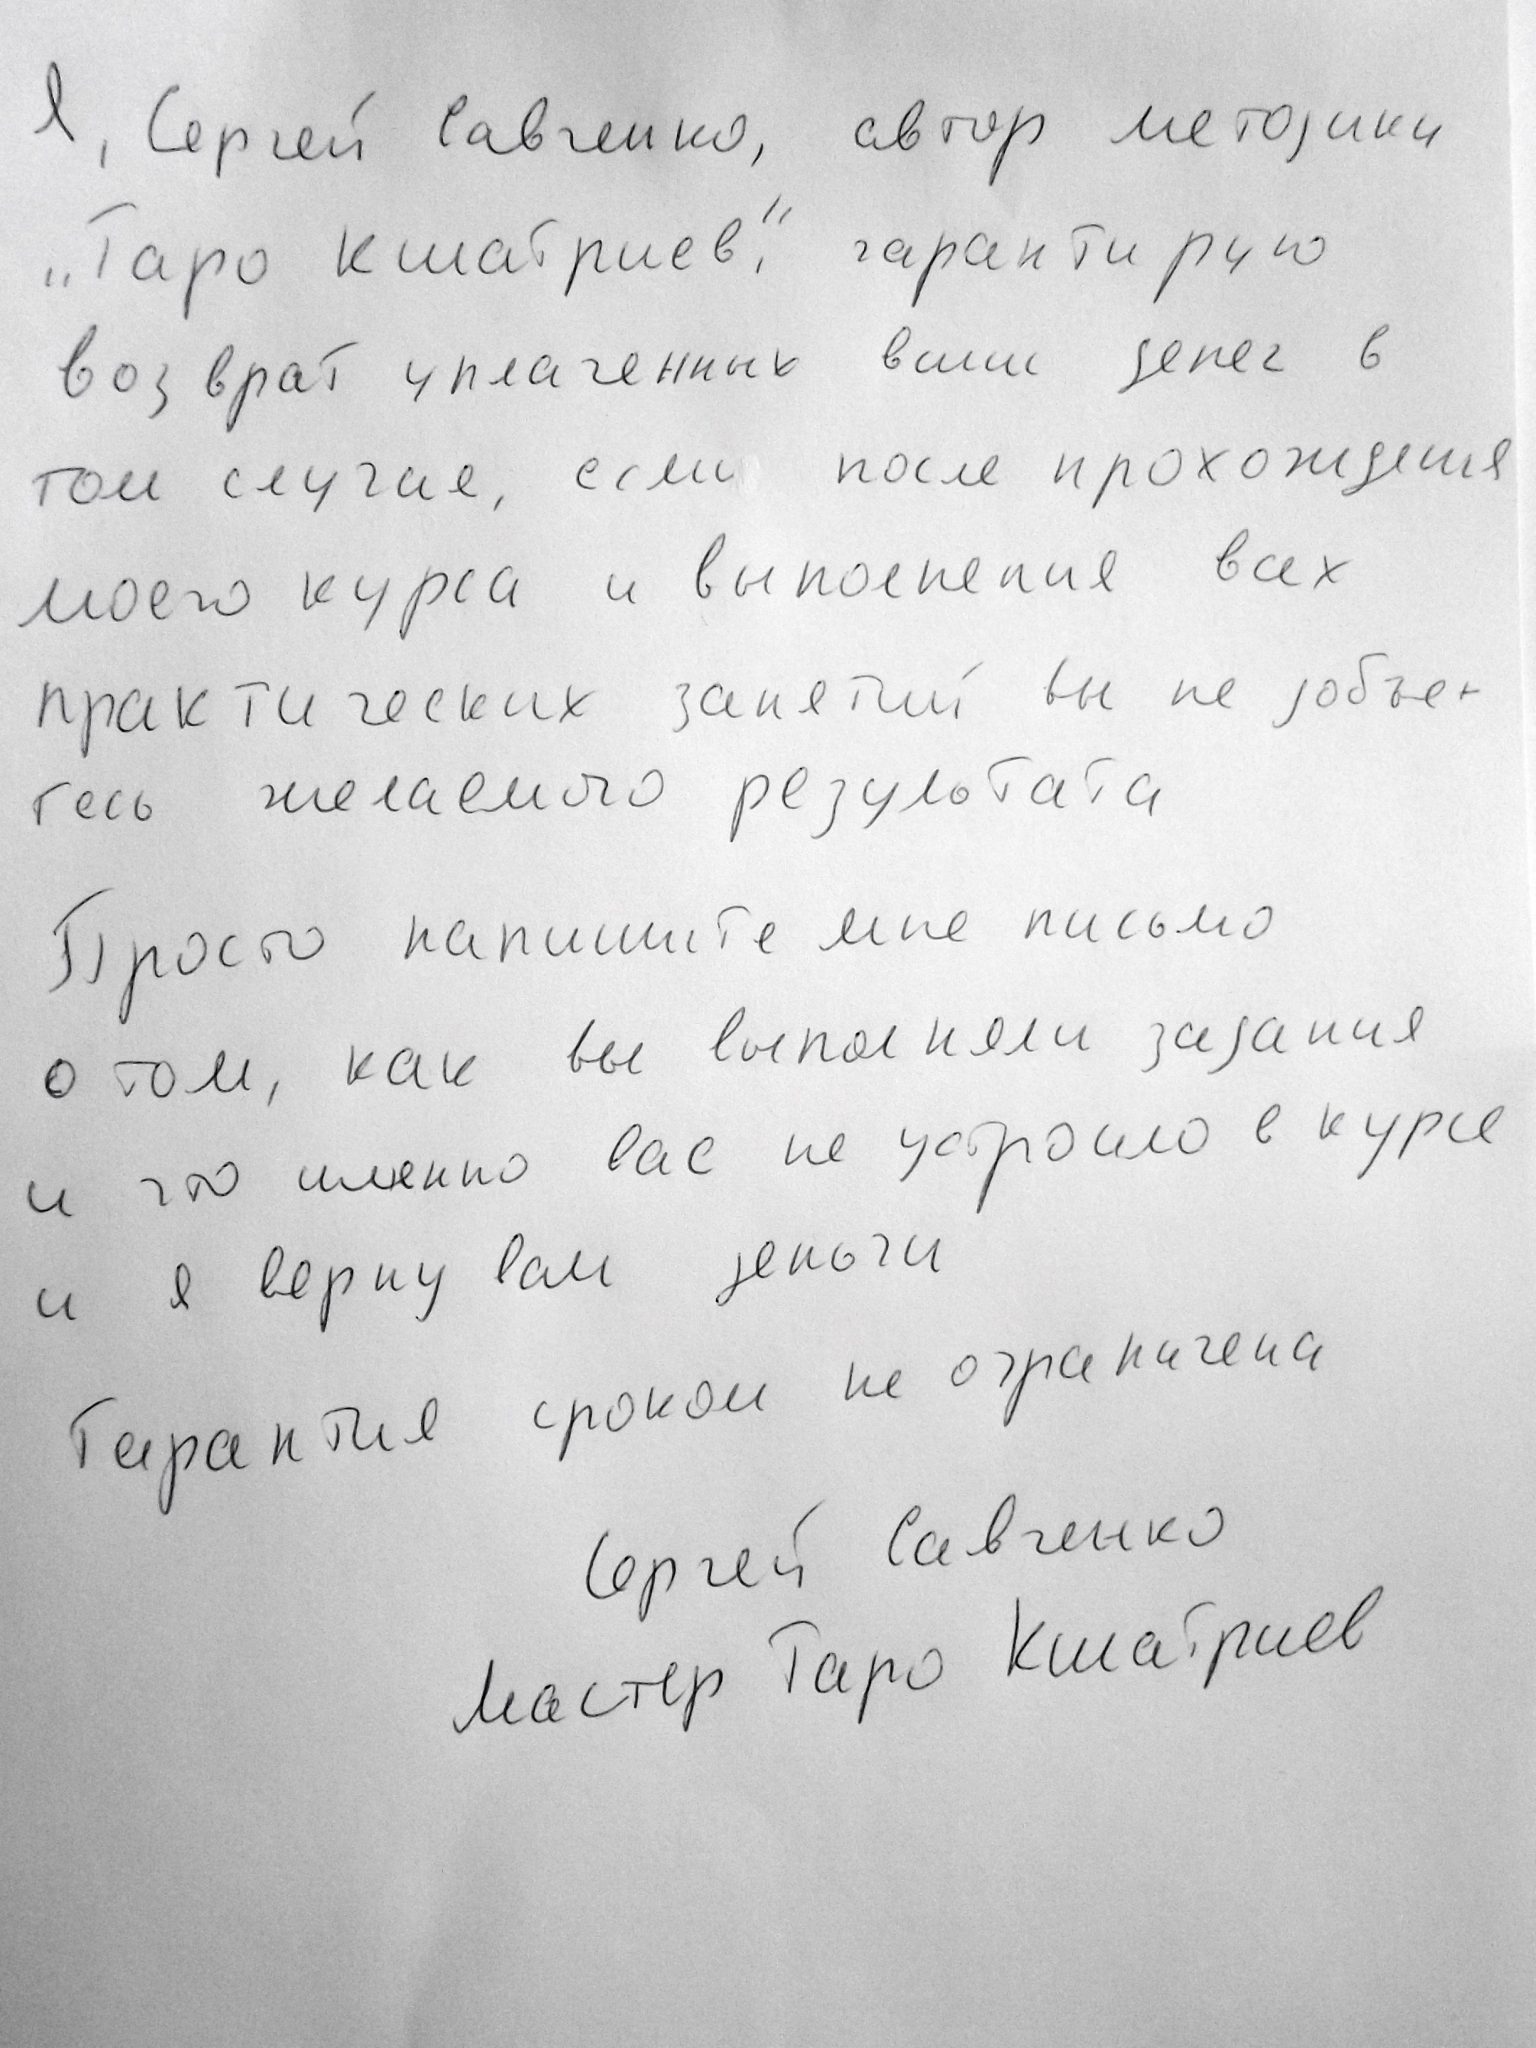 Я, Сергей Савченко, автор методики
„Таро Кшатриев“, гарантирую
возврат уплаченных вами денег в
том случае, если после прохождения
моего курса и выполнения всех
практических занятий вы не добье-
тесь желаемого результата
Просто напишите мне письмо
о том, как вы выполняли задания
и что именно вас не устроило в курсе
и я верну вам деньги
Гарантия сроком не ограничена
Сергей Савченко
Мастер Таро Кшатриев